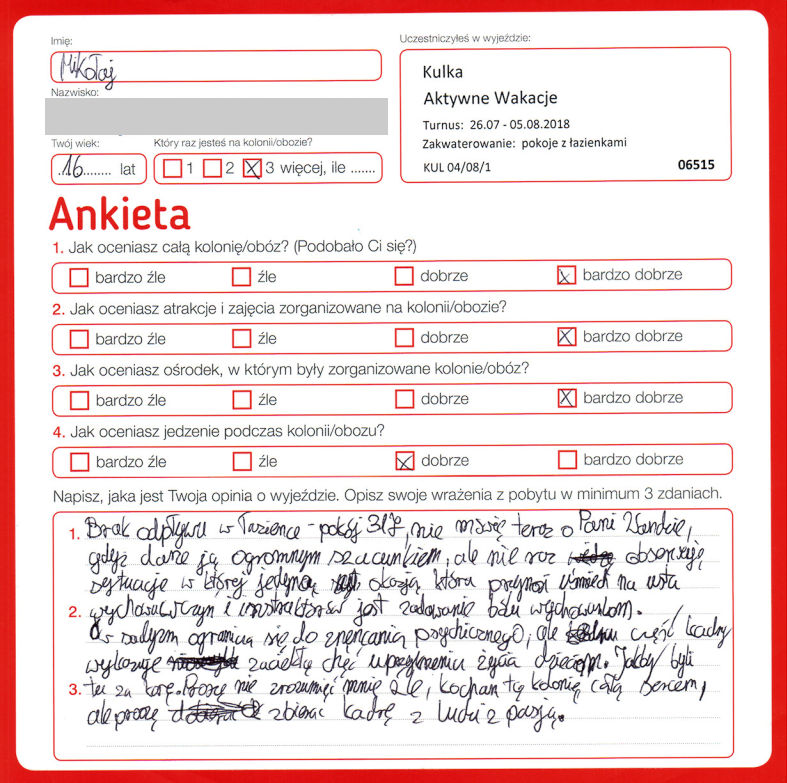 Imię:
Mikołaj
Nazwisko:
Twój wiek:
16 lat
Który raz jesteś na kolonii/obozie?
1 2 X 3 więcej, ile .......
Uczestniczyłeś w wyjeździe:
Kulka
Aktywne Wakacje
Turnus: 26.07 - 05.08.2018
Zakwaterowanie: pokoje z łazienkami
KUL 04/08/1 06515
Ankieta
1. Jak oceniasz całą kolonię/obóz? (Podobało Ci się?)
bardzo źle źle dobrze X bardzo dobrze
2. Jak oceniasz atrakcje i zajęcia zorganizowane na kolonii/obozie?
bardzo źle źle dobrze X bardzo dobrze
3. Jak oceniasz ośrodek, w którym były zorganizowane kolonie/obóz?
bardzo źle źle dobrze X bardzo dobrze
4. Jak oceniasz jedzenie podczas kolonii/obozu?
bardzo źle źle X dobrze bardzo dobrze
Napisz, jaka jest Twoja opinia o wyjeździe. Opisz swoje wrażenia z pobytu w minimum 3 zdaniach.
1. Brak odpływu w łazience - pokój 317, nie mówię teraz o Pani Wandzie,
gdyż darzę ją ogromnym szacunkiem, ale nie raz obserwuję
sytuację w której jedyną okazją która przynosi uśmiech na usta
2. wychowawczyn i instruktorów jest zadawanie bólu wychowankom.
sadyzm ogranicza się do znęcania psychicznego, ale część kadry
wykazuje zaciekłą chęć uprzykrzenia życia dzieciom. Jakby byli
3. tu za karę. Proszę nie zrozumieć mnie źle, kocham tą kolonię całą sercem,
ale proszę zbierać kadrę z ludzi z pasją.